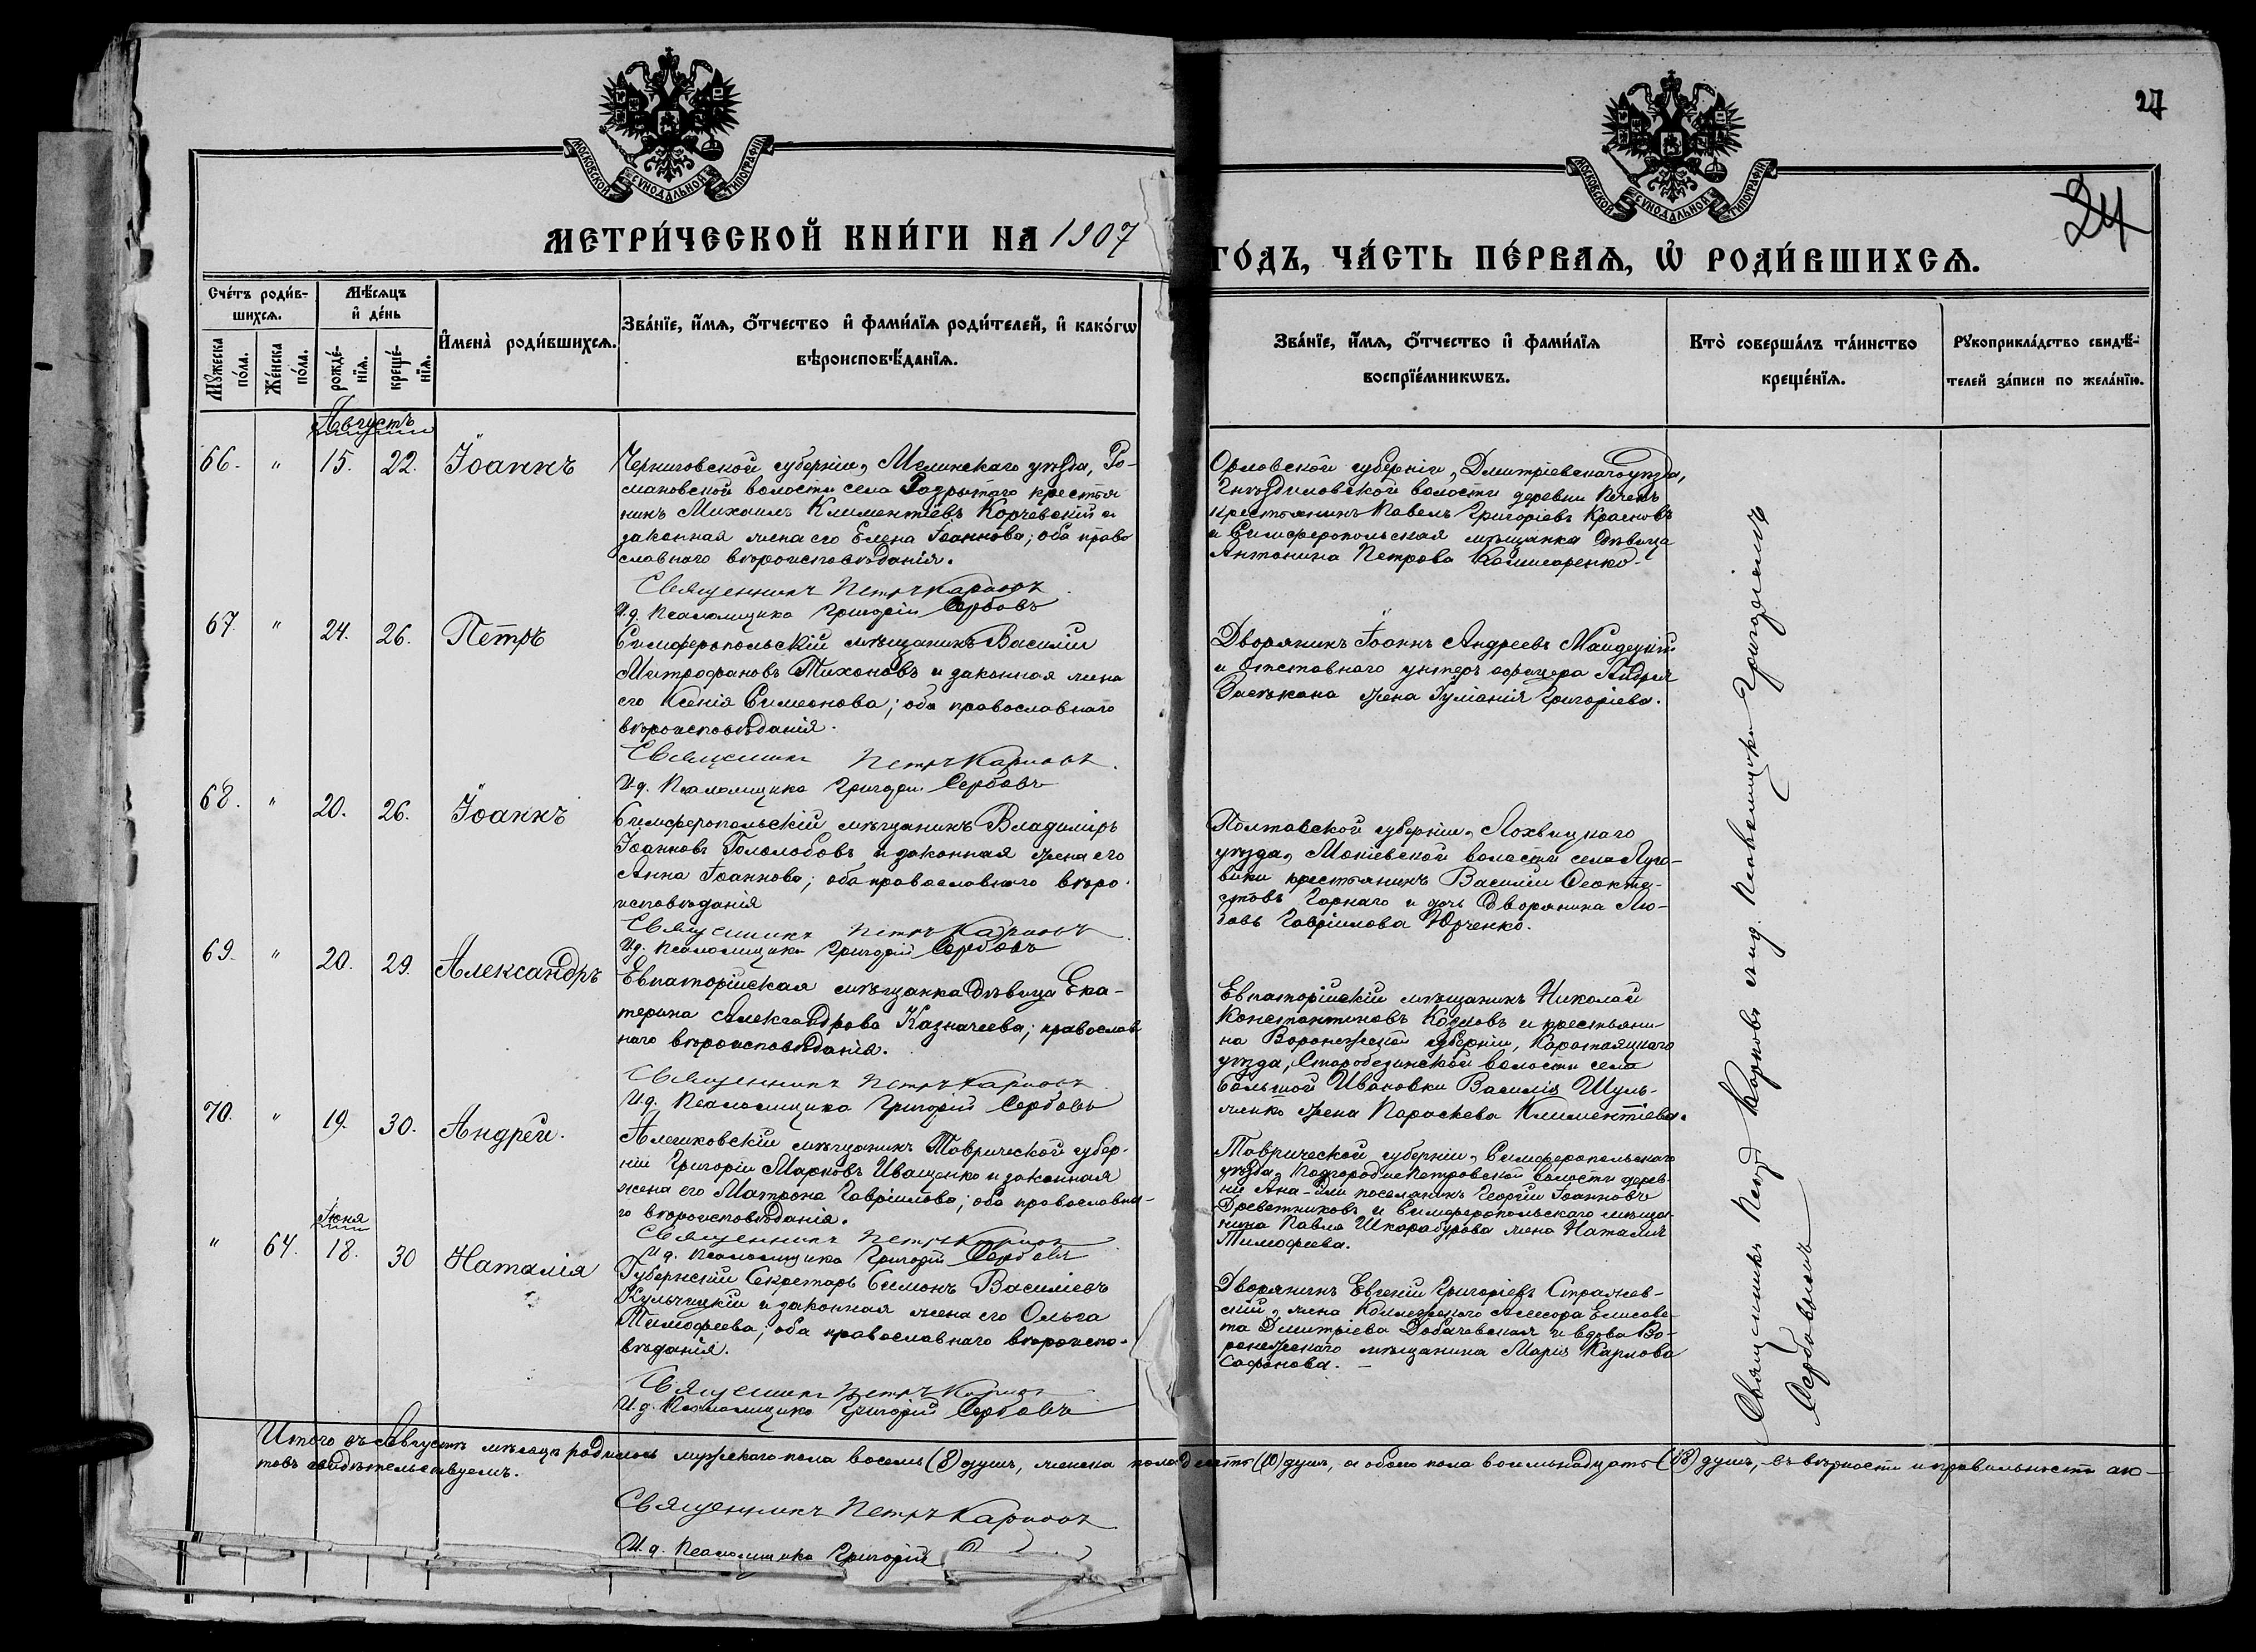 27
24
МОСКОВСКОЙ СѴНОДАЛЬНОЙ ТИПОГРАФІИ
МОСКОВСКОЙ СѴНОДАЛЬНОЙ ТИПОГРАФІИ
МЕТРИ́ЧЕСКОЙ КНИ́ГИ НА 1907
ГО́ДЪ, ЧА́СТЬ ПЕ́РВАѦ, Ѡ҆ РОДИ́ВШИХСѦ.
Сче́тъ роди́в-
шихсѧ.
Мѣ́сѧцъ
и҆ де́нь
Мꙋ́жеска
по́ла.
Же́нска
по́ла.
рожде́-
нїѧ.
креще́-
нїѧ.
И҆мена̀ роди́вшихсѧ.
Зва́нїе, и҆́мѧ, ѻ҆́тчество и҆ фами́лїѧ роди́телей, и҆ како́гѡ
вѣроисповѣ́данїѧ.
Зва́нїе, и҆́мѧ, ѻ҆́тчество и҆ фами́лїѧ
воспрїе́мникѡвъ.
Кто̀ соверша́лъ та́инство
креще́нїѧ.
Рꙋкоприкла́дство свидѣ́-
телей за́писи по жела́нїю.
Августъ
66. " 15. 22. Іоаннъ
Черниговской губерніи, Мглинскаго уѣзда, Ро-
мановской волости села Разрытаго крестья
нинъ Михаилъ Климентіевъ Корчевскій и
законная жена его Елена Іоаннова; оба право
славнаго вѣроисповѣданія.
Священникъ Петръ Карповъ
И.д. Псаломщика Григорій Сербовъ
Орловской губерніи, Дмитріевскаго уѣзда,
волости деревни
крестьянинъ Павелъ Григоріевъ Красновъ
и Симферопольская мѣщанка дѣвица
Антонина Петрова
67. " 24. 26. Петръ
Симферопольскій мѣщанинъ Василій
Митрофановъ Тихоновъ и законная жена
его Ксенія Симеонова; оба православнаго
вѣроисповѣданія.
Священникъ Петръ Карповъ.
И.д. Псаломщика Григорій Сербовъ
Дворянинъ Іоаннъ Андреевъ Майдецкій
и отставного унтеръ офицера Андрея
жена Іуліанія Григоріева.
68. " 20. 26. Іоаннъ
Симферопольскій мѣщанинъ Владиміръ
Іоанновъ Гололобовъ и законная жена его
Анна Іоаннова; оба православнаго вѣро-
исповѣданія
Священникъ Петръ Карповъ
И.д. Псаломщика Григорій Сербовъ
Полтавской губерніи, Лохвицкаго
уѣзда, волости села Луго-
вики крестьянинъ Василій Ѳеокти-
стовъ и дочь дворянина Лю-
бовь Гавріилова Юрченко.
69. " 20. 29. Александръ
Евпаторійская мѣщанка дѣвица Ека-
терина Александрова Казначеева; православ
наго вѣроисповѣданія.
Священникъ Петръ Карповъ
И.д. Псаломщика Григорій Сербовъ
Евпаторійскій мѣщанинъ Николай
Константиновъ Козловъ и крестьяни-
на Воронежской губерніи, Коротоякскаго
уѣзда, волости села
большой Ивановки Василія Шуль-
женко жена Параскева Климентіева.
70. " 19. 30. Андрей.
Алешковскій мѣщанинъ Таврической губер-
ніи Григорій Марковъ Иващенко и законная
жена его Матрона Гавріилова; оба православна-
го вѣроисповѣданія.
Священникъ Петръ Карповъ
И.д. Псаломщика Григорій Сербовъ
Таврической губерніи, Симферопольскаго
уѣзда, Подгородне Петровской волости дерев-
ни поселянинъ Георгій Іоанновъ
Древетниковъ и Симферопольскаго мѣща-
нина Павла Шкарабурова жена Наталія
Тимофеева.
Іюня
" 64. 18. 30 Наталія
Губернскій Секретарь Симонъ Василіевъ
Кульчицкій и законная жена его Ольга
Тимофеева; оба православнаго вѣроиспо-
вѣданія.
Священникъ Петръ Карповъ
И.д. Псаломщика Григорій Сербовъ
Дворянинъ Евгеній Григоріевъ Стражев-
скій, жена Коллежскаго Асессора Елисаве-
та Дмитріева Добачевская и вдова Во-
ронежскаго мѣщанина Марія Карлова
Сафонова.
Священникъ Петръ Карповъ съ и.д. Псаломщика Григоріемъ
Сербовымъ
Итого въ Августѣ мѣсяцѣ родилось мужскаго пола восемь (8) душъ, женска пола десять (10) душъ, а обоего пола восемьнадцать (18) душъ, въ вѣрности и правильности ак-
товъ свидѣтельствуемъ.
Священникъ Петръ Карповъ
И.д. Псаломщика Григорій